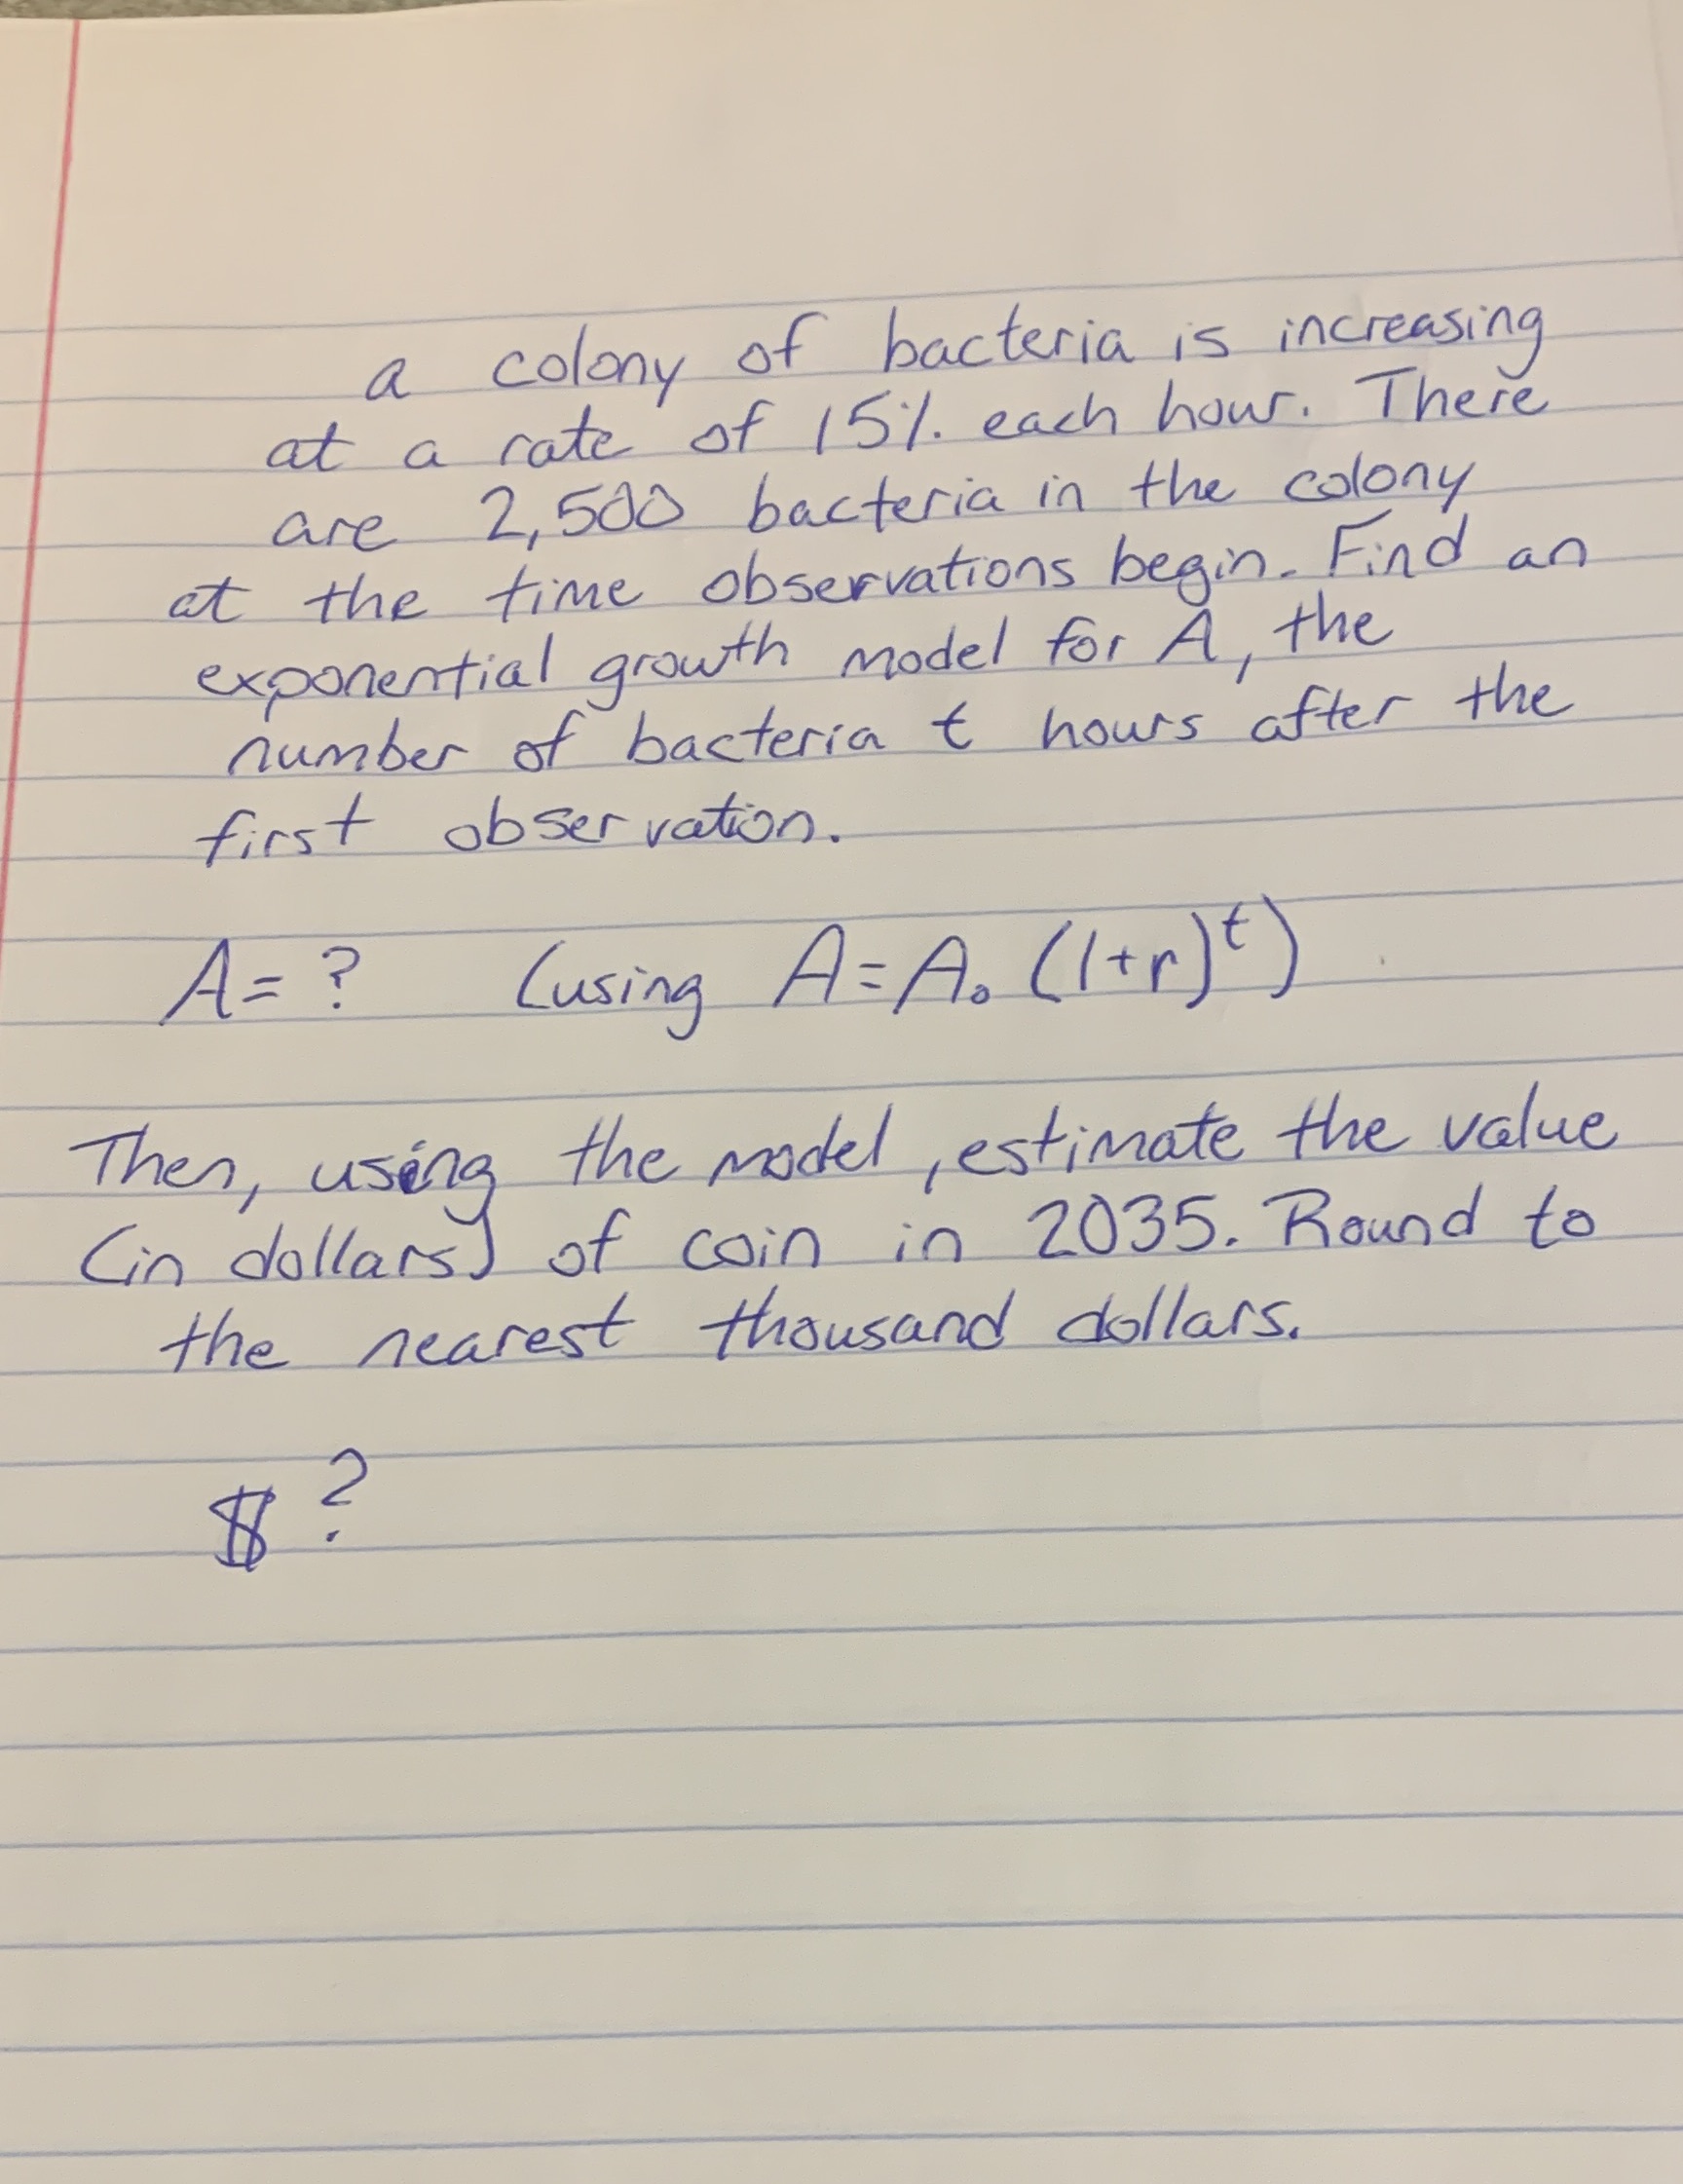 a colony of bacteria is increasing
at a rate of 15% each hour. There
are 2,500 bacteria in the colony
at the time observations begin. Find an
exponential growth model for A, the
number of bacteria t hours after the
first observation.
A=? (using A=A₀(1+r)ᵗ)
Then, using the model, estimate the value
(in dollars) of coin in 2035. Round to
the nearest thousand dollars.
$?